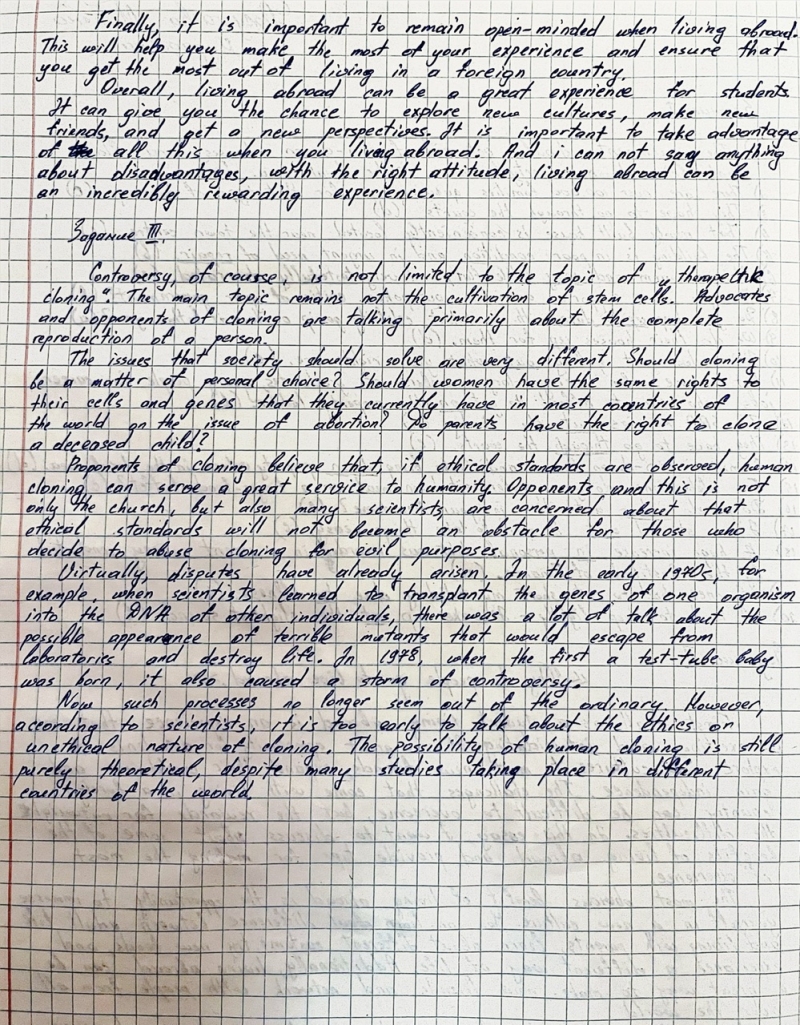 Finally, it is important to remain open-minded when living abroad.
This will help you make the most of your experience and ensure that
you get the most out of living in a foreign country.
Overall, living abroad can be a great experience for students.
It can give you the chance to explore new cultures, make new
friends, and get a new perspectives. It is important to take advantage
of all this when you living abroad. And i can not say anything
about disadvantages, with the right attitude, living abroad can be
an incredibly rewarding experience.
Задание III.
Controversy, of course, is not limited to the topic of „therapeutic
cloning“. The main topic remains not the cultivation of stem cells. Advocates
and opponents of cloning are talking primarily about the complete
reproduction of a person.
The issues that society should solve are very different. Should cloning
be a matter of personal choice? Should women have the same rights to
their cells and genes that they currently have in most countries of
the world on the issue of abortion? Do parents have the right to clone
a deceased child?
Proponents of cloning believe that, if ethical standards are observed, human
cloning can serve a great service to humanity. Opponents and this is not
only the church, but also many scientists, are concerned about that
ethical standards will not become an obstacle for those who
decide to abuse cloning for evil purposes
Virtually, disputes have already arisen. In the early 1970s, for
example, when scientists learned to transplant the genes of one organism
into the DNA of other individuals, there was a lot of talk about the
possible appearance of terrible mutants that would escape from
laboratories and destroy life. In 1978, when the first a test-tube baby
was born, it also caused a storm of controversy.
Now such processes no longer seem out of the ordinary. However,
according to scientists, it is too early to talk about the ethics or
unethical nature of cloning. The possibility of human cloning is still
purely theoretical, despite many studies taking place in different
countries of the world.